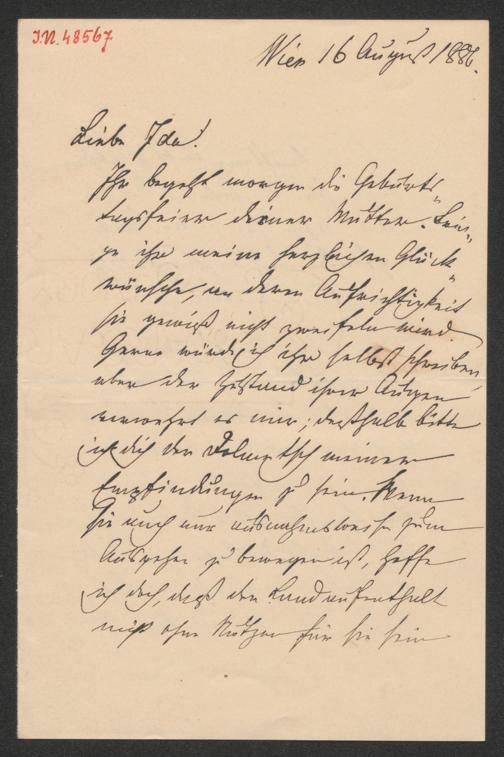 I.N. 48567
Wien 16 August 1886.
Liebe Ida!
Ihr begeht morgen die Geburts-
tagsfeier deiner Mutter. Brin-
ge ihr meine herzlichen Glück-
wünsche, an deren Aufrichtigkeit
sie gewiß nicht zweifeln wird.
Gerne würde ich ihr selbst schreiben,
aber der Zustand ihrer Augen
verwehrt es mir; deßhalb bitte
ich dich der Dolmetsch meiner
Empfindungen zu sein. Wenn
sie auch nur ausnahmsweise zum
Ausgehen zu bewegen ist, hoffe
ich doch, daß der Landaufenthalt
nicht ohne Nutzen für sie sein